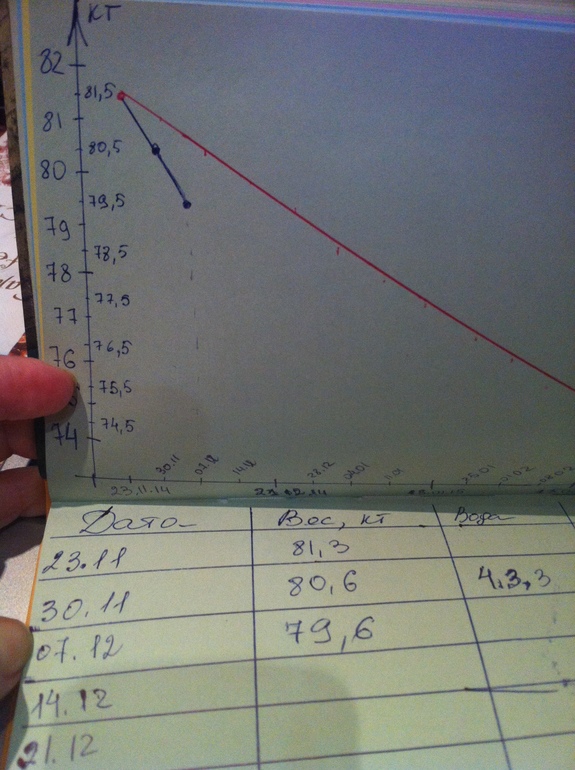 КГ
82
81,5
81
80,5
80
79,5
79
78,5
78
77,5
77
76,5
76
75,5
74,5
74
23.11.14 30.11 07.12 14.12 28.12 04.01 11.01 25.01 01.02
Дата Вес, кг Вода
23.11 81,3
30.11 80,6 4,3,3
07.12 79,6
14.12
21.12